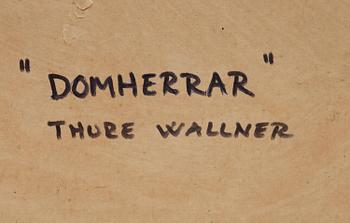 "DOMHERRAR"
THURE WALLNER